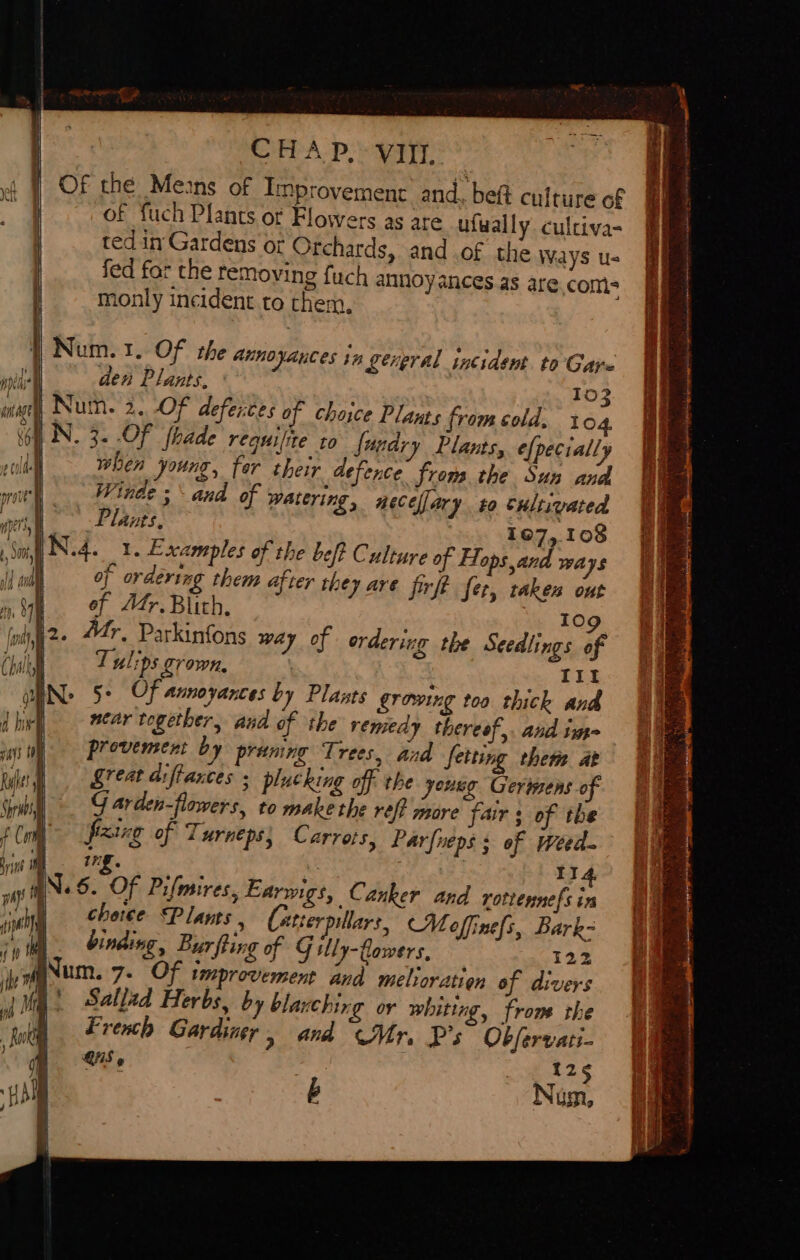 CHAP. VIII.
Of the Means of Improvement and, beſt culture of
of ſuch Plants or Flowers as are uſually cultiva-
ted in Gardens or Orchards, and of the ways u-
ſed for the removing ſuch annoyances as are com-
monly incident to them.
Num. 1. Of the annoyances in general incident to Gar-
den Plants. 103
Num. 2. Of defences of choice Plants from cold. 104
N. 3. Of ſhade requiſite to ſundry Plants, eſpecially
when young, for their defence from the Sun and
Winde; and of watering, neceſſary to cultivated
Plants. 107, 108
N.4. 1. Examples of the beſt Culture of Hops, and ways
of ordering them after they are firſt ſet, taken out
of Mr. Blith. 109
2. Mr. Parkinſons way of ordering the Seedlings of
Tulips grown. 111
N. 5. Of annoyances by Plants growing too thick and
near together, and of the remedy thereof, and im-
provement by pruning Trees, and ſetting them at
great diſtances; plucking off the young Germens of
Garden-flowers, to make the reſt more fair; of the
ſizing of Turneps, Carrots, Parſneps; of Weed-
ing. 114
N. 6. Of Piſmires, Earwigs, Canker and rottenneſs in
choice Plants, Catterpillars, Moſſineſs, Bark-
binding, Burſting of Gilly-flowers. 122
Num. 7. Of improvement and melioration of divers
Sallad Herbs, by blanching or whiting, from the
French Gardiner, and Mr. P's Obſervati-
ons. 125
b Num,